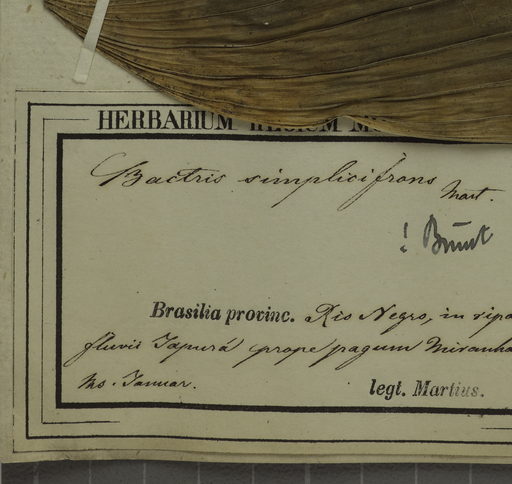 HERBARIUM REGIUM M
Bactris simplicifrons Mart.
! Burret
Brasilia provinc. Rio Negro, in ripa
fluvii Japurá prope pagum Miranha
Ms. Januar.
legt. Martius.